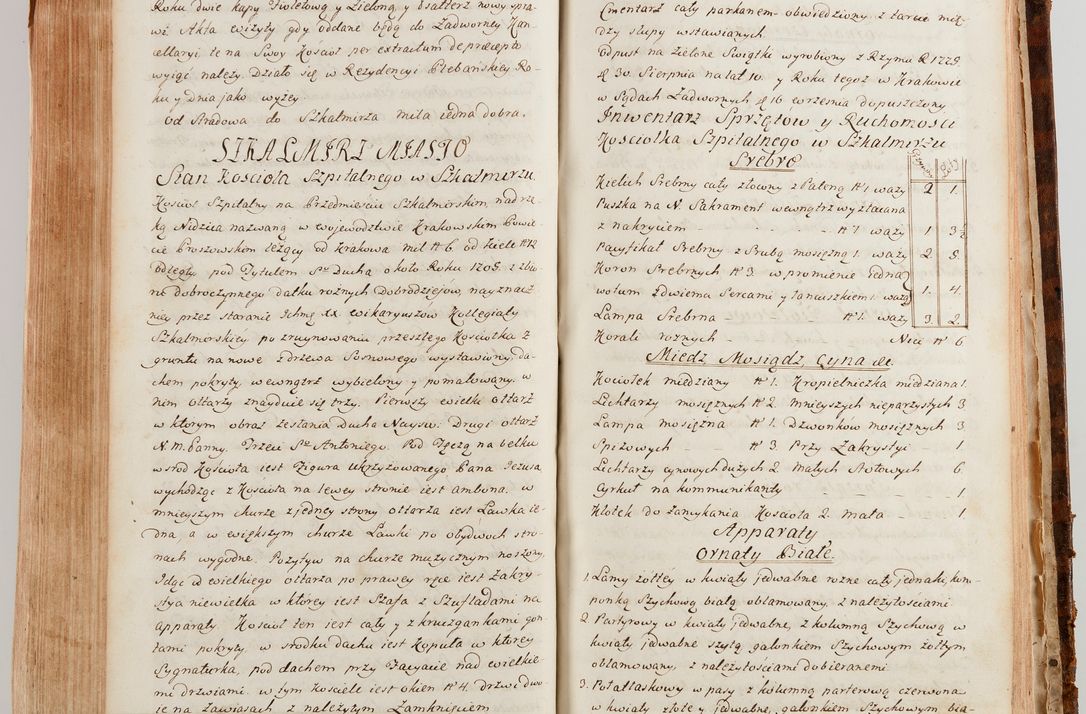 Roku dwie kapy Fioletową y Zieloną, y Psałterz nowy spra-
wić Akta wizyty gdy oddane będą do Zadworney Kan-
cellaryi, te na Swoy Kościoł per extractum de præcepto
wyiąć należy. Działo się w Rezydencyi Plebańskiey Ro-
ku y Dnia jako wyżey.
Od Stradowa do Szkalmirza mila iedna dobra.
SZKALMIRZ MIASTO
Stan Kościoła Szpitalnego w Szkalmirzu.
Kościoł Szpitalny na Przedmieściu Szkalmirskim, nad rze-
ką Nidzica nazwaną w Wojewodztwie Krakowskim Powie-
cie Proszowskim leżący od Krakowa mil No 6. od Kielc No 12
odległy pod Tytułem So Ducha około Roku 1705. z zbio-
ru dobroczynnego datku rożnych Dobrodziejow, nayznacz
niey przez staranie Ichmę XX. Wikaryuszow Kollegiaty
Szkalmirskiey po zruynowaniu przeszłego Kościołka z
gruntu na nowe z drzewa Sosnowego wystawiony, da-
chem pokryty, wewnątrz wybielony y pomalowany. w
nim ołtarzy znayduie się trzy. Pierwszy wielki ołtarz
w ktorym obraz Zesłania Ducha Nayśw: Drugi ołtarz
N. M. Panny. Trzeci So Antoniego. Pod Tęczą na belku
wśrod Kościoła iest Figura Ukrzyżowanego Pana Jezusa,
wychodząc z Kościoła na lewey stronie iest ambona. w
mnieyszym churze z jedney strony ołtarza iest Ławka ie-
dna, a w większym churze Ławki po obydwoch stro-
nach wygodne. Pozytyw na churze muzycznym noszony,
Idąc od wielkiego ołtarza po prawey ręce iest Zakry-
stya niewielka w ktorey iest Szafa z Szufladami na
apparaty. Kościoł ten iest cały y z kruzgankami gon-
tami pokryty, w środku dachu iest Kopuła w ktorey
Sygnaturka, pod dachem przy Facyacie nad wielkie-
mi drzwiami. w tym Kościele iest okien No 4. drzwi dwo-
ie na zawiasach z należytym Zamknięciem
Cmentarz cały parkanem obwiedziony, z tarcic mię-
dzy słupy wstawianych.
Odpust na Zielone Swiątki wyrobiony z Rzymu R 1778.
d 30. Sierpnia na lat 10. y Roku tegoż w Krakowie
w Sądach Zadwornych d 16 Września dopuszczony
Inwentarz Sprzętow y Ruchomości
Kościołka Szpitalnego w Szkalmirzu
Srebro
Grzywny | Łoty
Kielich Srebrny cały złocony z Pateną No 1 waży 2 1.
Puszka na N. Sakrament wewnątrz wyzłacana
z nakryciem No 1 waży 1 3½
Pacyfikał Srebrny z Srubą mosiężną 1. waży 2 8.
Koron Srebrnych No 3. w promienie Jedna,
wotum z dwiema Sercami y łancuszkiem 1. waży 1. 4.
Lampa Srebrna No 1. waży 3. 2.
Korali rożnych Nici No 6
Miedz, Mosiądz, Cyna &c.
Kociołek miedziany No 1. Kropielniczka miedziana 1.
Lichtarzy mosiężnych No 2. Mnieyszych nieparzystych 3
Lampa mosiężna No 1. Dzwonkow mosiężnych 3
Spiżowych No 3. Przy Zakrystyi 1.
Lichtarzy cynowych dużych 2. Małych Stołowych 6
Cyrkuł na kommunikanty 1.
Kłotek do zamykania Kościoła 2. mała 1
Apparaty
Ornaty Białe.
1. Lamy żołtey w kwiaty jedwabne rożne cały jednaki, kom-
ponką Szychową białą oblamowany, z należytościami
2. Partyrowy w kwiaty jedwabne, z kolumną Szychową w
kwiaty jedwabne szytą, galonkiem Szychowym żołtym
oblamowany, z należytościami dobieranemi.
3. Potattaskowy w pasy z kolumną parterową czerwoną
w kwiaty złote y jedwabne, galonkiem Szychowym bia-